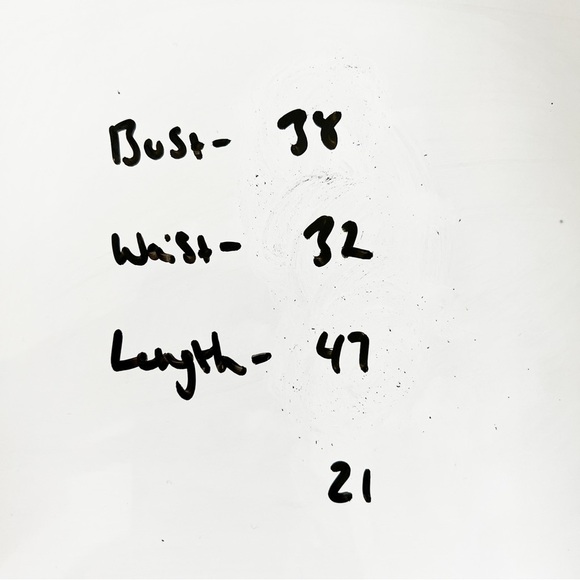 Bust- 38
Waist- 32
Length- 47
21